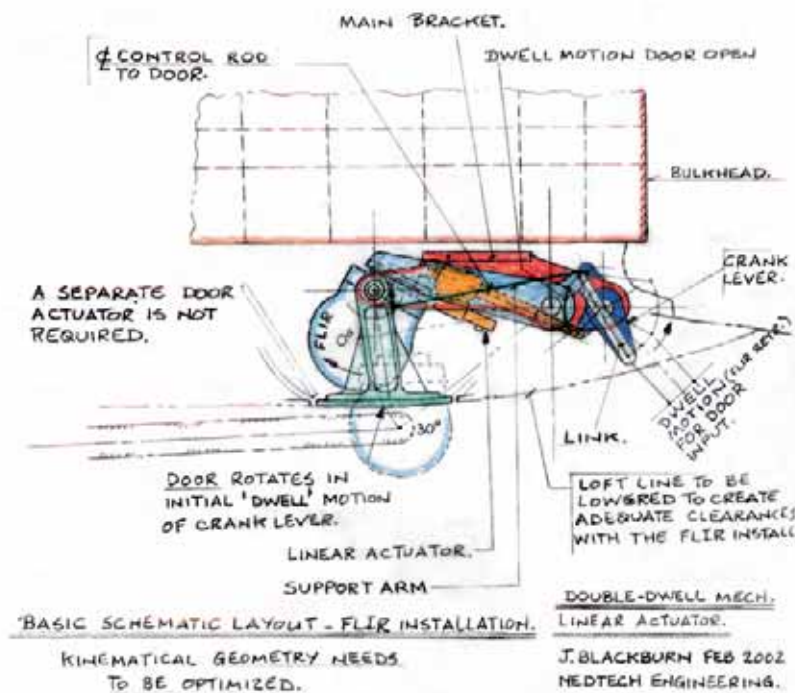 MAIN BRACKET.
℄ CONTROL ROD
TO DOOR.
DWELL MOTION DOOR OPEN
BULKHEAD.
CRANK
LEVER.
A SEPARATE DOOR
ACTUATOR IS NOT
REQUIRED.
FLIR
DWELL
MOTION (FLIR RETR.)
FOR DOOR
INPUT.
30°
LINK.
DOOR ROTATES IN
INITIAL 'DWELL' MOTION
OF CRANK LEVER.
LOFT LINE TO BE
LOWERED TO CREATE
ADEQUATE CLEARANCES
WITH THE FLIR INSTALL
LINEAR ACTUATOR.
SUPPORT ARM
BASIC SCHEMATIC LAYOUT - FLIR INSTALLATION.
KINEMATICAL GEOMETRY NEEDS
TO BE OPTIMIZED.
DOUBLE-DWELL MECH.
LINEAR ACTUATOR.
J. BLACKBURN FEB 2002
NEDTECH ENGINEERING.